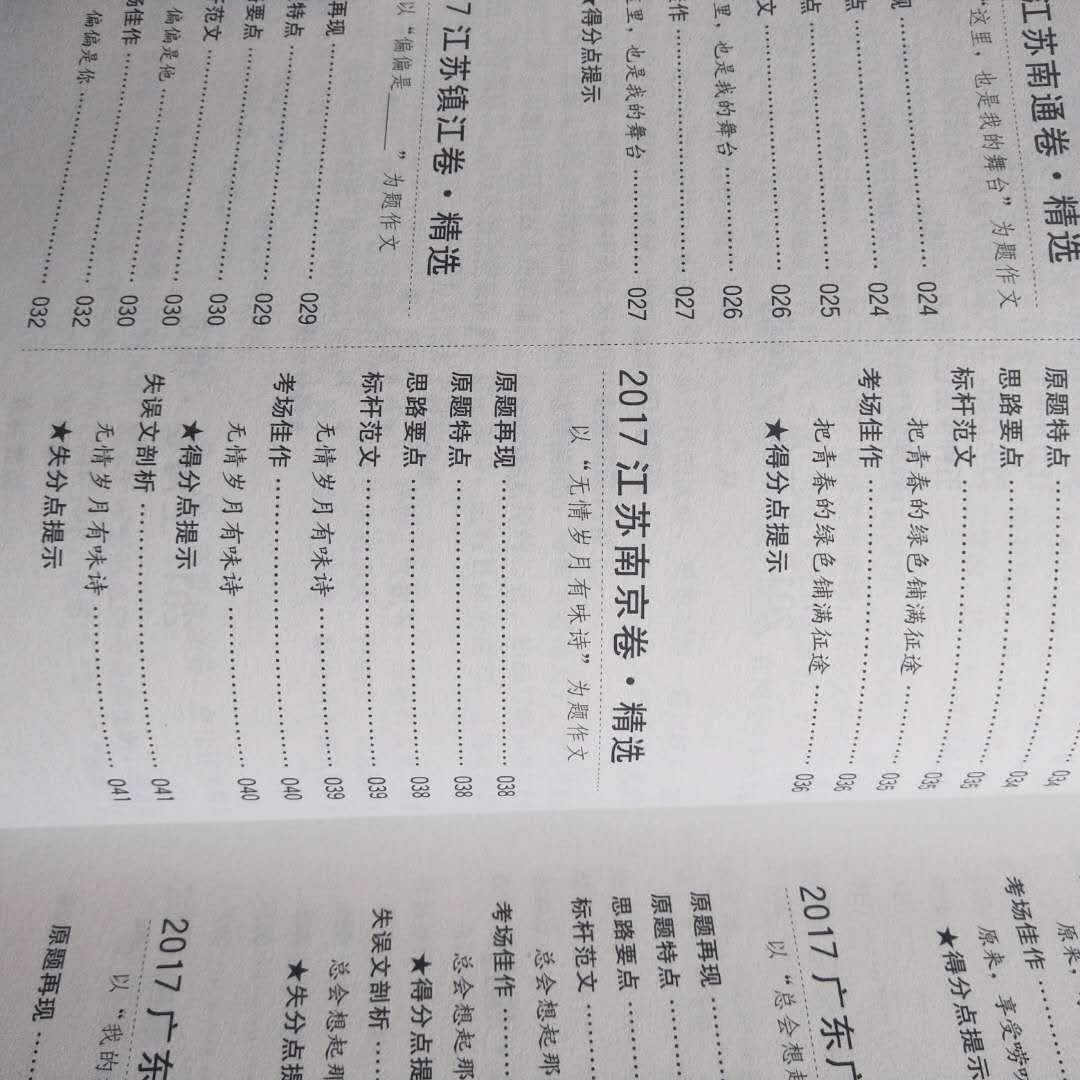 江苏南通卷·精选
“这里，也是我的舞台”为题作文
现 024
点 024
点 025
文 026
里，也是我的舞台 026
作 027
里，也是我的舞台 027
★得分点提示
7 江苏镇江卷·精选
以“偏偏是____”为题作文
再现 029
特点 029
要点 030
范文 030
偏偏是他 030
佳作 032
偏偏是你 032
034
原题特点 034
思路要点 035
标杆范文 035
把青春的绿色铺满征途 035
考场佳作 036
把青春的绿色铺满征途 036
★得分点提示
2017 江苏南京卷·精选
以“无情岁月有味诗”为题作文
原题再现 038
原题特点 038
思路要点 038
标杆范文 039
无情岁月有味诗 039
考场佳作 040
无情岁月有味诗 040
★得分点提示
失误文剖析 041
无情岁月有味诗 041
★失分点提示
原来，
考场佳作
原来，享受唠
★得分点提示
2017 广东广
以“总会想起
原题再现
原题特点
思路要点
标杆范文
总会想起那
考场佳作
总会想起那
★得分点提
失误文剖析
总会想起那
★失分点提
2017 广东
以“我的
原题再现